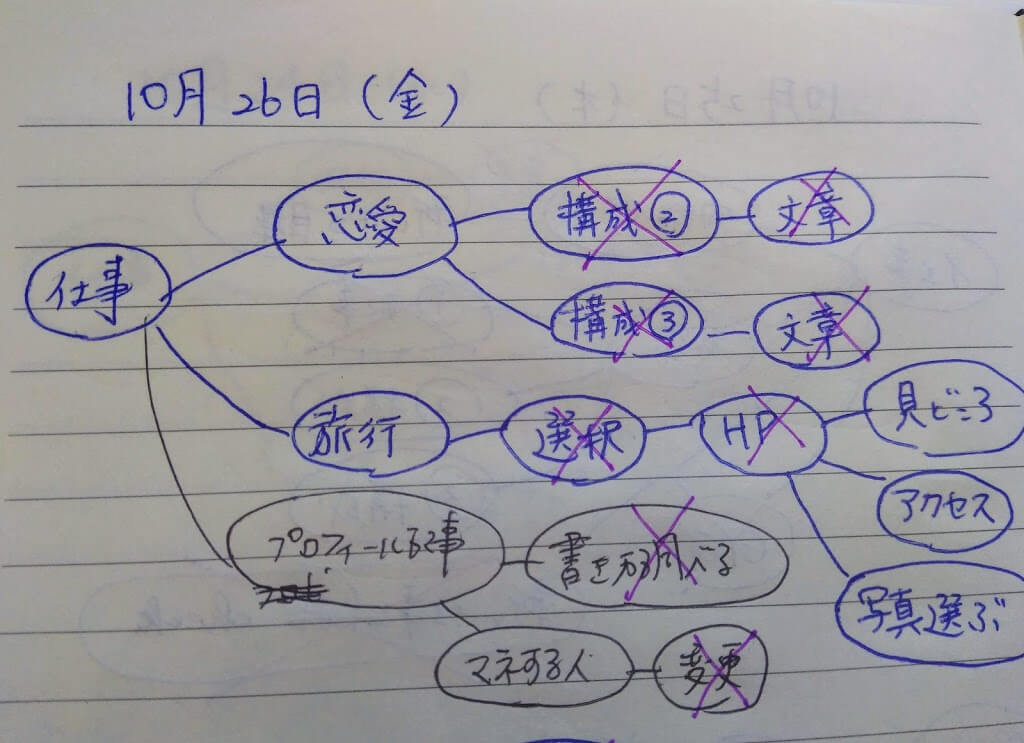 10月26日(金)
仕事
恋愛
構成②
文章
構成③
文章
旅行
選択
HP
見どころ
アクセス
写真選ぶ
プロフィール記事
書き方調べる
マネする人
変更